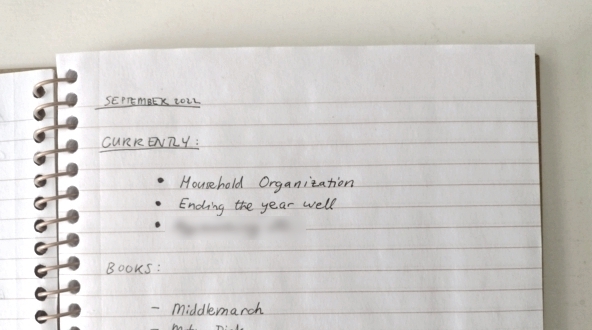 SEPTEMBER 2022
CURRENTLY:
• Household Organization
• Ending the year well
•
BOOKS:
– Middlemarch
–